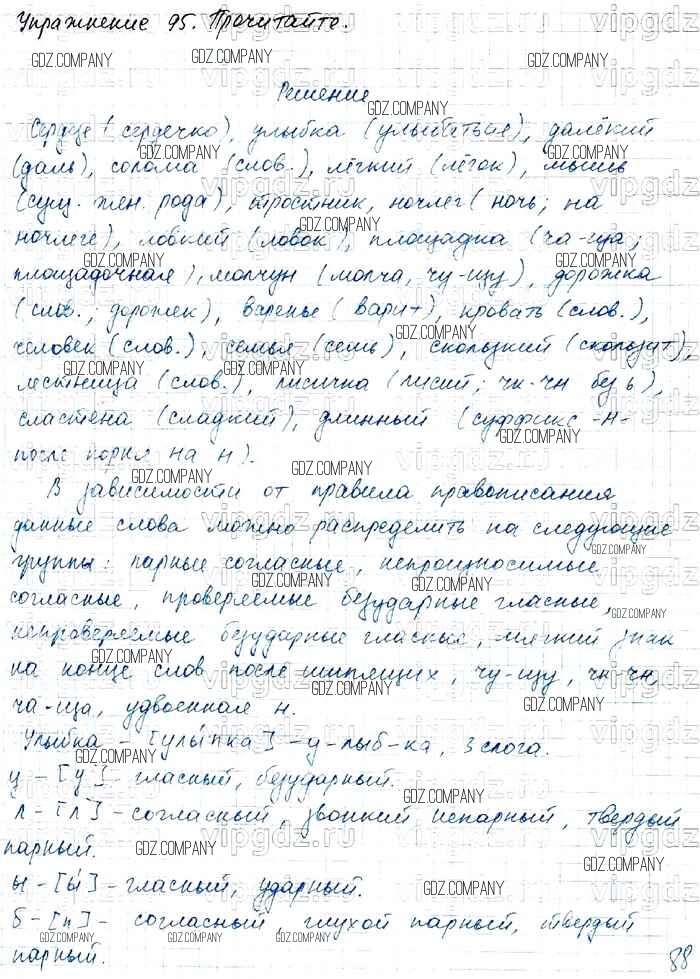 Упражнение 95. Прочитайте.
Решение
Сердце (сердечко), улыбка (улыбаться), далёкий
(даль), солома (слов.), лёгкий (лёгок), мышь
(сущ. жен. рода), тростник, ночлег (ночь; на
ночлеге), ловкий (ловок), площадка (ча-ща;
площадочная), молчун (молча, чу-щу), дорожка
(слов.; дорожек), варенье (варит), кровать (слов.),
человек (слов.), семья (семь), скользкий (скользит),
лестница (слов.), лисичка (лисий; чк-чн без ь),
сластёна (сладкий), длинный (суффикс -н-
после корня на н).
В зависимости от правила правописания
данные слова можно распределить на следующие
группы: парные согласные, непроизносимые
согласные, проверяемые безударные гласные,
непроверяемые безударные гласные, мягкий знак
на конце слов после шипящих, чу-щу, чк-чн,
ча-ща, удвоенная н.
Улыбка - [улы́пка] - у-лыб-ка, 3 слога.
у - [у] - гласный, безударный.
л - [л] - согласный, звонкий непарный, твердый
парный.
ы - [ы́] - гласный, ударный.
б - [п] - согласный, глухой парный, твердый
парный.
88